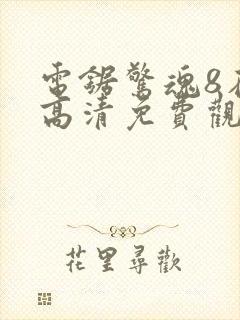 電鋸驚魂8
高清免費觀
花里尋歡